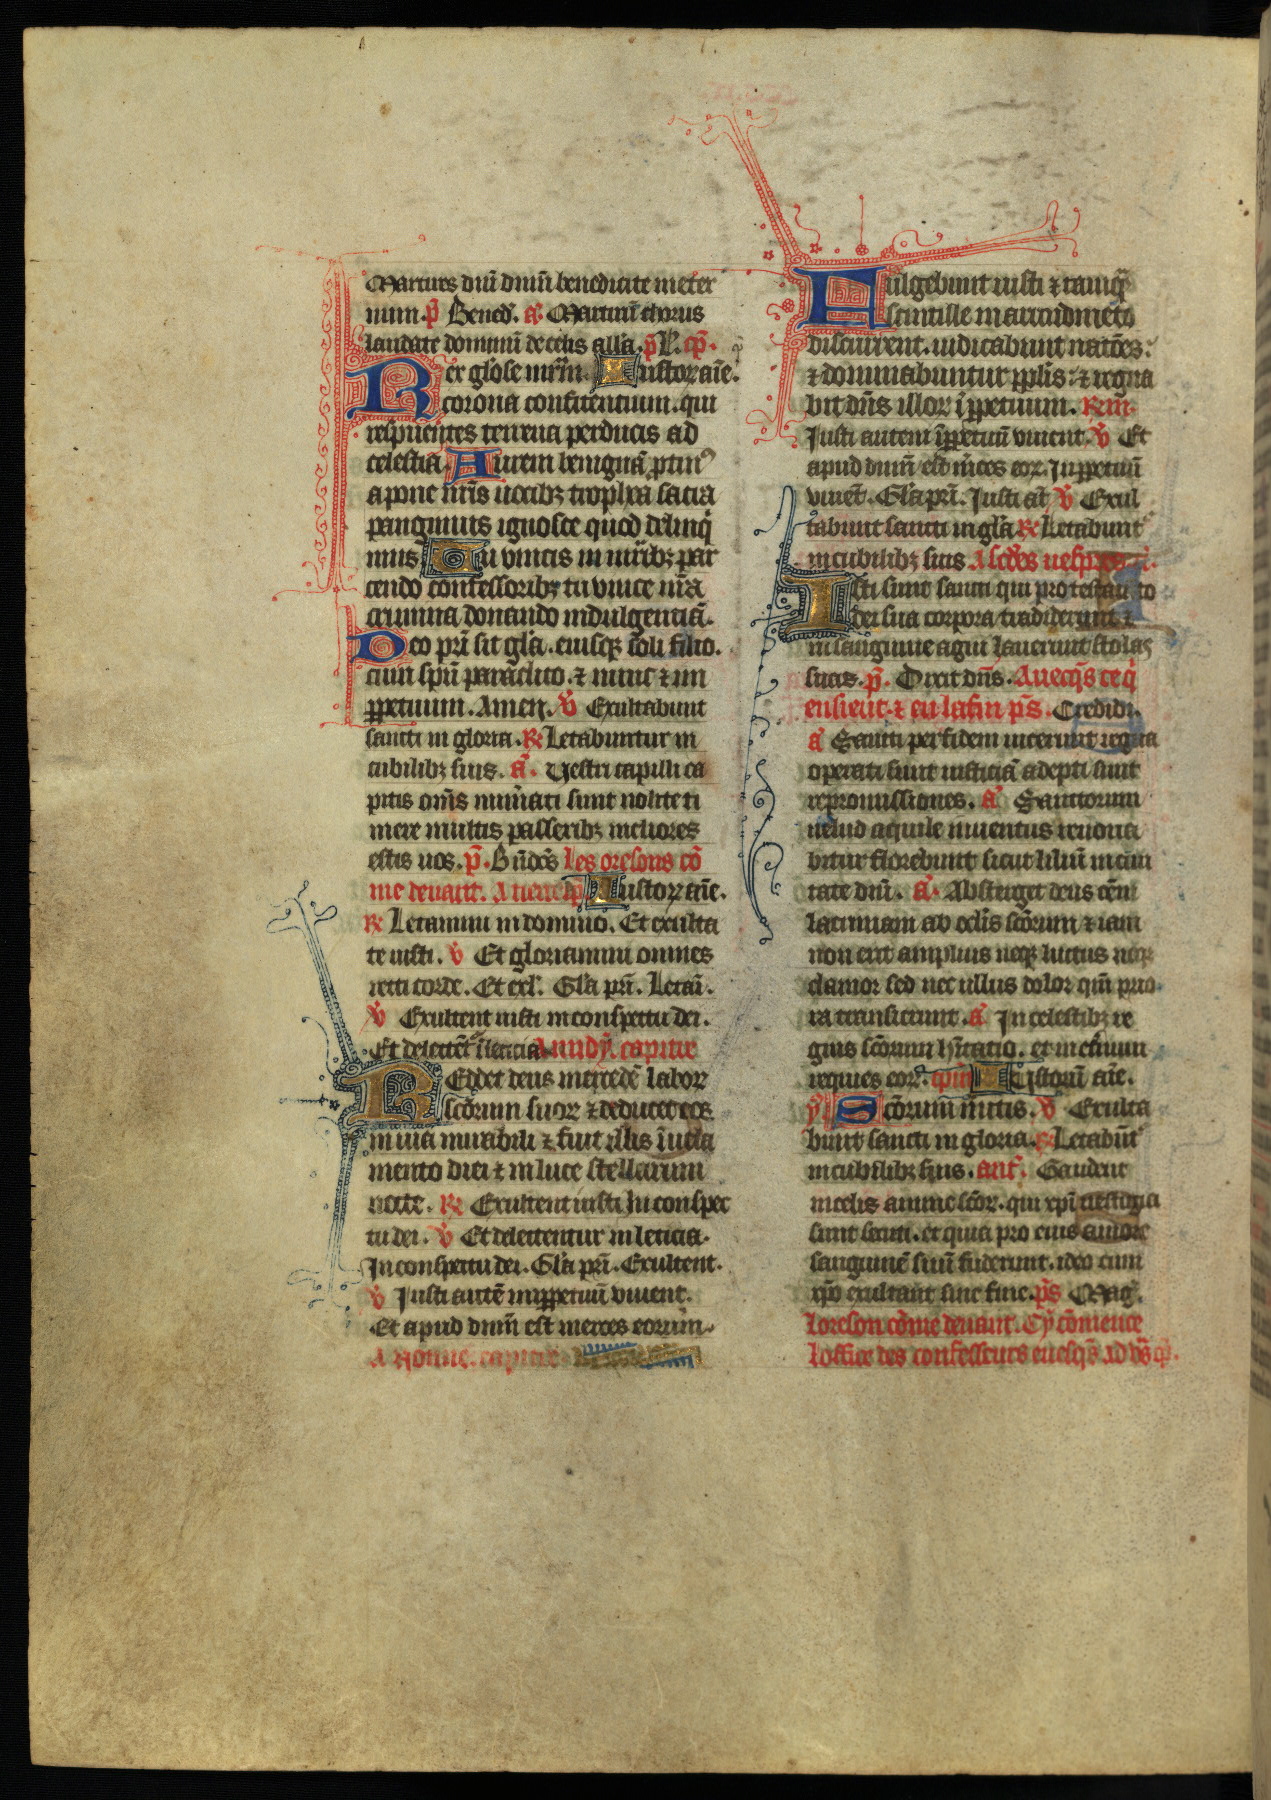 Martires dñi dñm benedicite ineter
num. p̄s Bened̄. a. Martirū chorus
laudate dominū de celis alla. p̄s l. cp̄.
Rex gl̄ose mr̄m. Iustoꝝ aīe.
corona confitentium. qui
respuentes terrena perducis ad
celestia. Aurem benignā ꝓtinꝰ
apone nr̄is vocibꝫ trophea sacra
pangimus ignosce quod delinq̄
mus. Tu vincis in mr̄ibꝫ par
cendo confessoribꝫ tu vince nr̄a
crimina donando indulgenciā.
Deo pr̄i sit gl̄a. eiusqꝫ soli filio.
cum spū paraclito. ⁊ nunc ⁊ in
ꝑpetuum. Amen. v̄ Exultabunt
sancti in gloria. ℟ Letabuntur in
cubilibꝫ suis. a. Vestri capilli ca
pitis om̄s num̄ati sunt nolite ti
mere multis passeribꝫ meliores
estis vos. p̄. Bn̄dc̄s les oresons cō
me deuant. A tierce cp̄ Iustoꝝ aīe.
℟ Letamini in domino. Et exulta
te iusti. v̄ Et gloriamini omnes
recti corde. Et exl̄. Gl̄a pr̄i. Letam̄.
v̄ Exultent iusti in conspectu dei.
Et delectēt̄ ī leticia. A midy. capitre
Reddet deus mercedē laboꝝ
sc̄orum suoꝝ ⁊ deducet eos
in via mirabili ⁊ fuit illis ī vela
mento diei ⁊ in luce stellarum
nocte. ℟ Exultent iusti In conspec
tu dei. v̄ Et delectentur in leticia.
In conspectu dei. Gl̄a pr̄i. Exultent.
v̄ Justi autē in ꝑpetuū viuent.
Et apud dnm̄ est merces eorum.
A Nonne. capitre
Fulgebunt iusti ⁊ tamq̄
scintille in arundineto
discurrent. iudicabunt natōes.
⁊ dominabuntur ꝑplis. ⁊ regna
bit dn̄s illoꝝ ī ꝑpetuum. Rem̄.
Justi autem ī ꝑpetuū viuent. v̄ Et
apud dnm̄ est m̄ces eoꝝ. In ꝑpetuū
viuēt. Gl̄a pr̄i. Justi at̄ v̄ Exul
tabunt sancti in gl̄a ℟ Letabunt̄
in cubilibꝫ suis. A sc̄des uespres. a.
Isti sunt sancti qui pro testam̄to
dei sua corpora tradiderunt. ⁊
in sanguine agni lauerunt stolas
suas. p̄. Dixit dn̄s. Auecqs ce q̄
ensieut. ⁊ en la fin p̄s. Credidi.
a Sancti per fidem uicerunt regna
operati sunt iusticiā adepti sunt
repromissiones. a Sanctorum
uelud aquile iuuentus renoua
bitur florebunt sicut liliū in ciui
tate dnī. a. Absterget deus om̄e
lacrimam ab oclis sc̄orum ⁊ iam
non erit amplius neqꝫ luctus neqꝫ
clamor sed nec ullus dolor qm̄ prio
ra transierunt. a In celestibꝫ re
gnis sc̄orum hītatio. et in eternum
requies eoꝝ. cpitre Iustorū aīe.
y. Sc̄orum m̄itis. v̄ Exulta
bunt sancti in gloria. ℟ Letabūt̄
in cubilibꝫ suis. ant. Gaudent
in celis anime sc̄oꝝ. qui xp̄i uestigia
sunt secuti. et quia pro eius amore
sanguinē suū fuderunt. ideo cum
xp̄o exultant sine fine. p̄s Mag̅.
Loreson cōme deuant. Cy cōmence
loffice des confesseurs euesq̄s ad vs̄ cp̄.